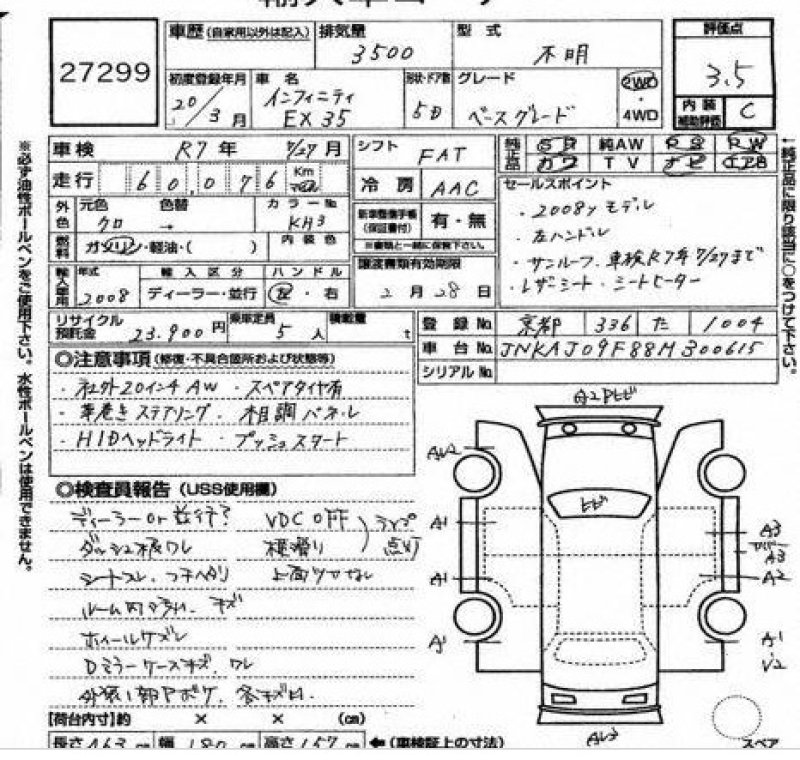 27299
車歴 (自家用以外は記入)
排気量
3500
型式
不明
評価点
3.5
初度登録年月
20/3月
車名
インフィニティ
EX35
形状・ドア数
5D
グレード
ベースグレード
2WD
・
4WD
内装
補助評価
C
車検 R7年 7/27月
走行 60,076 Km
シフト FAT
冷房 AAC
純正品
SR 純AW PS PW
カワ TV ナビ エアB
外色
元色 クロ
色替 →
カラーNo KH3
燃料 ガソリン・軽油・( )
内装色
新車整備手帳
(保証書付)
有・無
※書類と一緒に保管下さい。
セールスポイント
・2008yモデル
・左ハンドル
・サンルーフ.車検R7年7/27まで
・レザーシート・シートヒーター
輸入車用
年式 2008
輸入区分
ディーラー・並行
ハンドル
左・右
譲渡書類有効期限
2月28日
リサイクル
預託金
23.900円
乗車定員
5人
積載量
t
登録No. 京都 336 た 1004
車台No. JNKAJ09F88M300615
シリアルNo.
◎注意事項 (修復・不具合箇所および状態等)
・社外20インチAW ・スペアタイヤ有
・革巻きステアリング ・木目調パネル
・HIDヘッドライト ・プッシュスタート
◎検査員報告 (USS使用欄)
ディーラーor並行? VDC OFF
ダッシュ板ワレ 横滑り
ランプ点灯
シートスレ.コゲヘタリ
キズ
ホイールケズレ
Dミラーケースキズ.ワレ
トビ
AW2
A1
A1
A1
A3
A3
A2
A1
スペア
【荷台内寸】約 × × (cm)
長さ463cm 幅180cm 高さ157cm ←(車検証上の寸法)
※必ず油性ボールペンをご使用下さい。水性ボールペンは使用できません。
←純正品に限り該当に○をつけて下さい